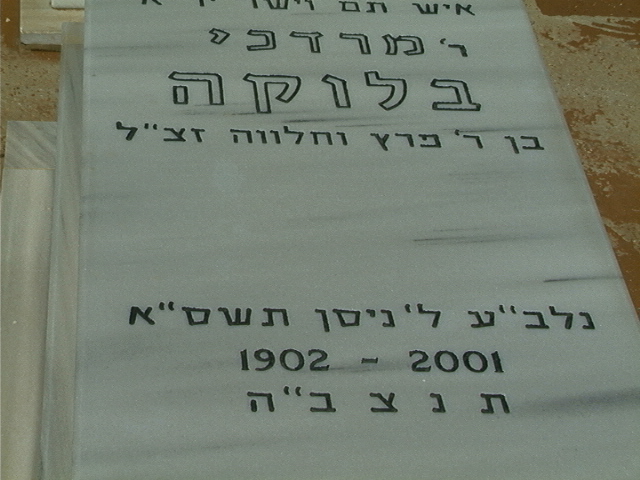 איש תם וישר
ר' מרדכי
בלוקה
בן ר' פרץ וחלווה זצ"ל
נלב"ע ל' ניסן תשס"א
1902 - 2001
ת נ צ ב"ה